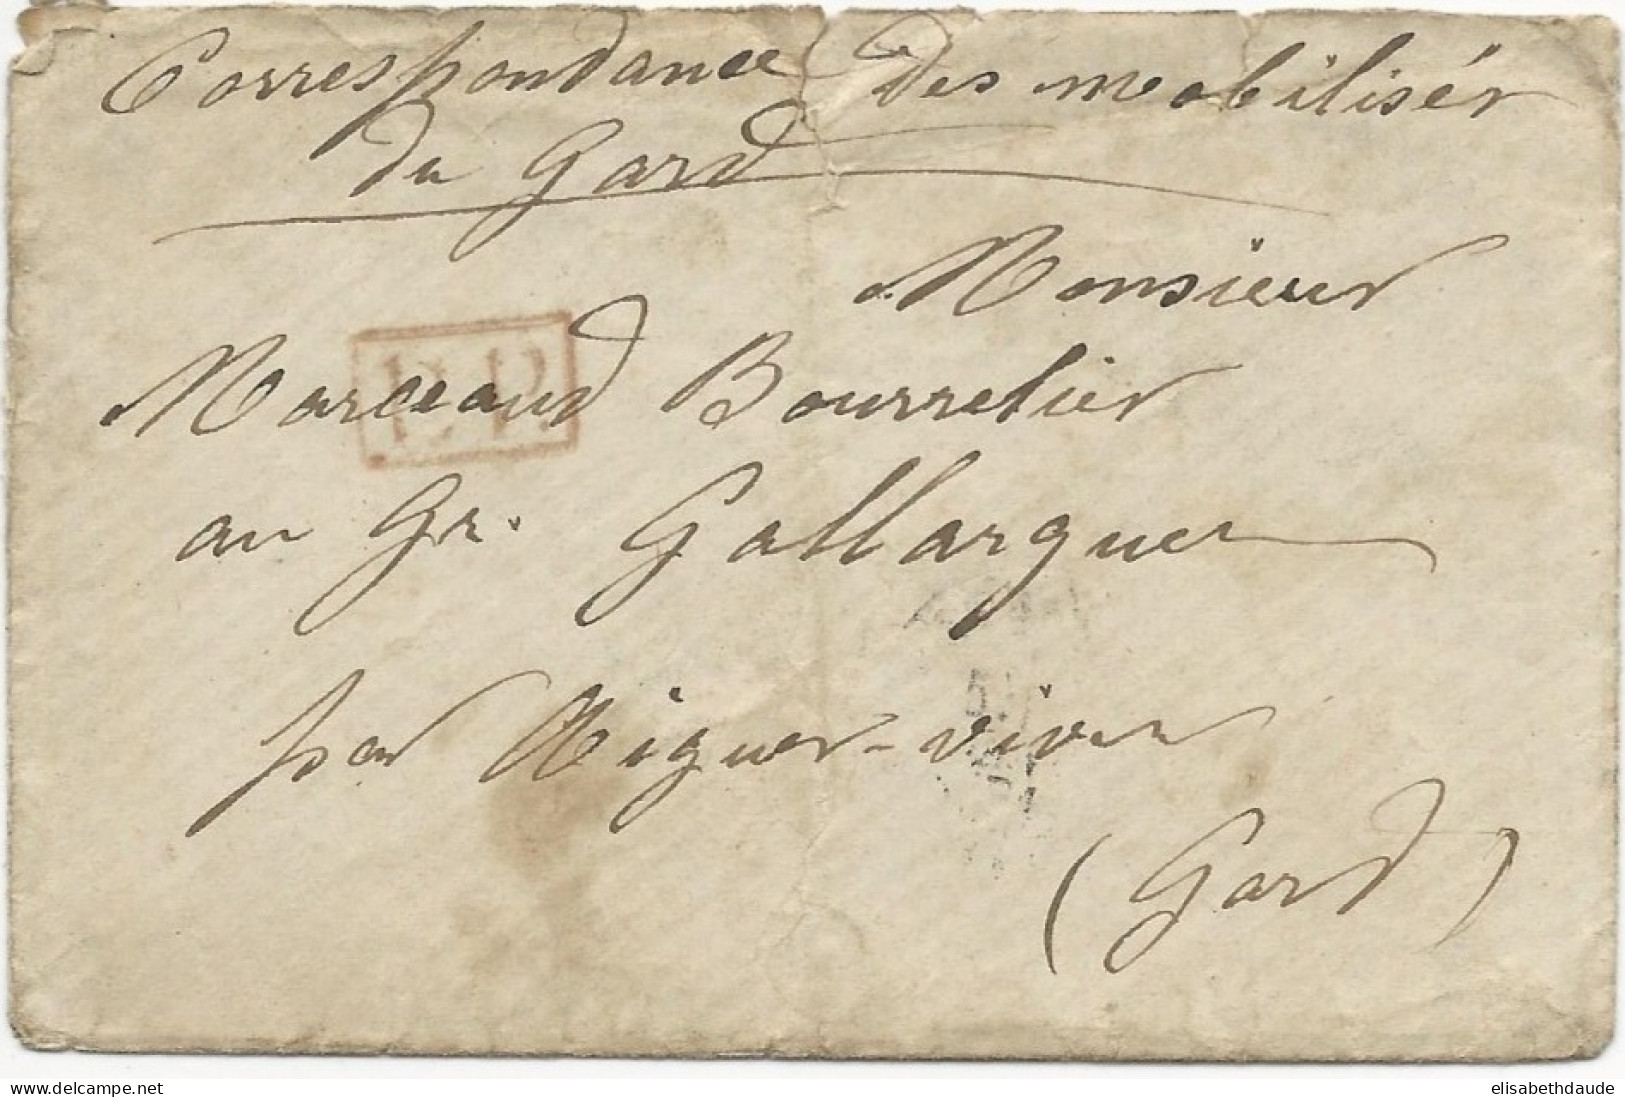 Correspondance des mobilisés
du Gard
Monsieur
P.P.
Marceaud Bourrelier
au Gr. Gallargues
par Aigues-vives
(Gard)
delcampe.net
elisabethdaude